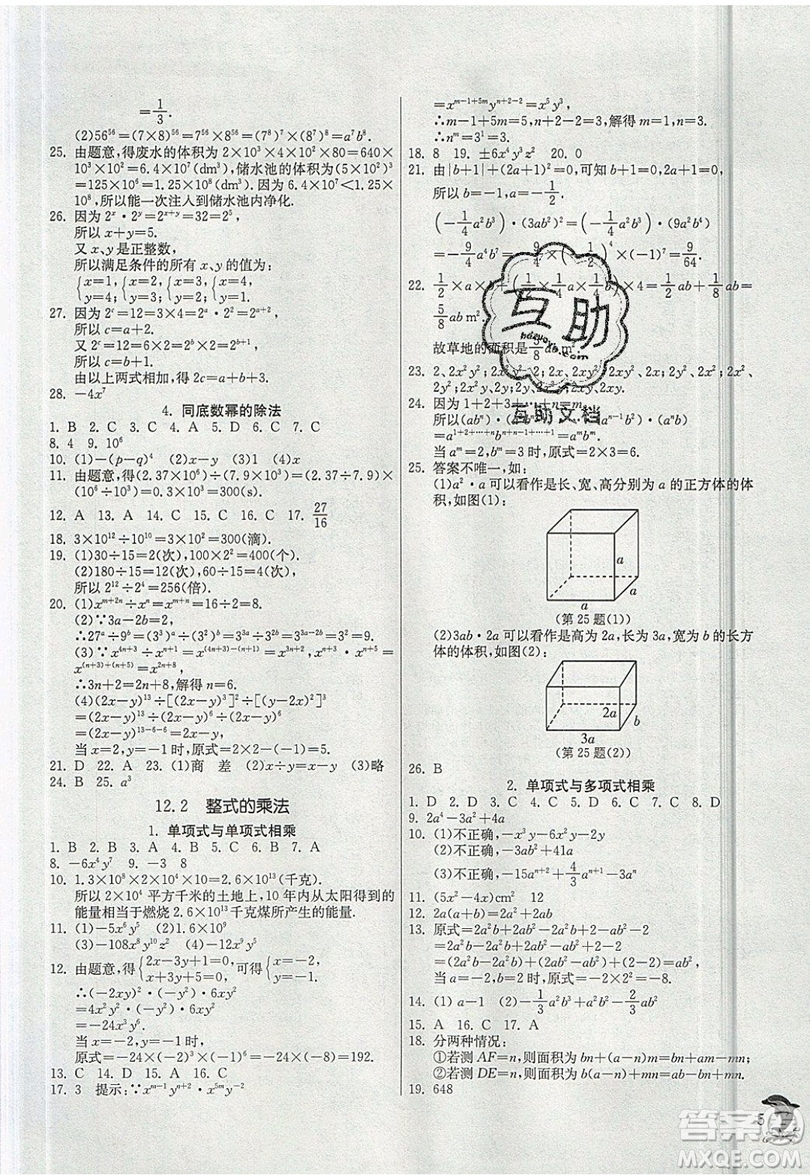 =1/3.
(2)56⁵⁶=(7×8)⁵⁶=7⁵⁶×8⁵⁶=(7⁸)⁷×(8⁷)⁸=a⁷b⁸.
25. 由题意,得废水的体积为 2×10³×4×10²×80=640×
10³×10²=6.4×10⁷(dm³),储水池的体积为(5×10²)³
=125×10⁶=1.25×10⁸(dm³).因为 6.4×10⁷<1.25×
10⁸.所以能一次注入到储水池内净化.
26. 因为 2ˣ·2ʸ=2ˣ⁺ʸ=32=2⁵,
所以 x+y=5.
又 x、y 是正整数,
所以满足条件的所有 x、y 的值为:
{x=1, y=4; {x=2, y=3; {x=3, y=2; {x=4, y=1.
27. 因为 2ᶜ=12=3×4=3×2²=2ᵃ×2²=2ᵃ⁺²,
所以 c=a+2.
因为 2ᶜ=12=6×2=2ᵇ×2=2ᵇ⁺¹,
所以 c=b+1.
由以上两式相加,得 2c=a+b+3.
28. −4x⁷
4. 同底数幂的除法
1. B 2. C 3. C 4. A 5. C 6. C 7. C
8. 4 9. 10⁶
10. (1)−(p−q)⁴ (2)c⁴ (3)1 (4)x
11. 由题意,得(2.37×10⁶)÷(7.9×10³)=(2.37÷7.9)×
(10⁶÷10³)=0.3×10³=300(s).
12. A 13. A 14. C 15. C 16. C 17. 27/16
18. 3×10¹²÷10¹⁰=3×10²=300(滴).
19. (1)30÷15=2(次),100×2²=400(个).
(2)180÷15=12(次),60÷15=4(次),
所以 2¹²÷2⁴=256(倍).
20. (1)xᵐ⁺²ⁿ÷xⁿ=xᵐ⁺ⁿ=16÷2=8.
(2)∵3a−2b−2=0,∴3a−2b=2,
∴27ᵃ÷9ᵇ=(3³)ᵃ÷(3²)ᵇ=3³ᵃ÷3²ᵇ=3³ᵃ⁻²ᵇ=3²=9.
(3)∵x⁴ⁿ⁺³÷xⁿ⁺¹=x⁽⁴ⁿ⁺³⁾⁻⁽ⁿ⁺¹⁾=x³ⁿ⁺²,xⁿ⁺³·xⁿ⁺⁵=
x⁽ⁿ⁺³⁾⁺⁽ⁿ⁺⁵⁾=x²ⁿ⁺⁸,
∴3n+2=2n+8,解得 n=6.
(4)(2x−y)¹³÷[(2x−y)³]²÷[(y−2x)²]³
=(2x−y)¹³÷(2x−y)⁶÷(2x−y)⁶
=(2x−y)¹³⁻⁶⁻⁶=2x−y,
当 x=2,y=−1 时,原式=2×2−(−1)=5.
21. D 22. A 23. (1)商 差 (2)x÷y=x/y (3)略
24. B 25. a³
12.2 整式的乘法
1. 单项式与单项式相乘
1. B 2. B 3. C 4. D 5. D 6. B 7. A
8. −6x⁴y⁷ 9. −3 8
10. 1.3×10⁸×2×10⁴×10=2.6×10¹³(千克).
所以 2×10⁴ 平方千米的土地上,一年内从太阳得到的
能量相当于燃烧 2.6×10¹³千克煤所产生的能量.
11. (1)−5x⁶y⁵ (2)−3x³y³
(3)−108x⁸y¹⁰z² (4)−9x⁶y³
12. 由题意,得{2x−3y−1=0, x+3y+5=0, 可得{x=−2, y=−1.
∴(−2xy)²·(−y²)·6xy²
=4x²y²·(−y²)·6xy²
=−24x³y⁶.
当 x=−2,y=−1 时,
原式=−24×(−2)³×(−1)⁶=192.
13. C 14. D 15. A 16. C
17. 3 提示:∵xᵐ⁻¹yⁿ⁺²·x⁵ᵐy⁻²
=xᵐ⁻¹⁺⁵ᵐyⁿ⁺²⁻²=x⁵y³,
∴m−1+5m=5,n+2−2=3,解得 m=1,n=3.
∴nᵐ=3¹=3.
18. 8 19. ±6x⁴y³z² 20. 0
21. 由|b+1|+(2a+1)²=0,可知 b+1=0,2a+1=0,
所以 b=−1,a=−1/2.
(−1/4a²b³)·(3ab²)²=(−1/4a²b³)·(9a²b⁴)
=−9/4a⁴b⁷=−9/4×(−1/2)⁴×(−1)⁷=9/64.
故草地的面积是 5/8ab m².
24. 因为 1+2+3+⋯+n=m,
当 m=2,b=3 时,原式=2×3=6.
25. 答案不唯一,如:
(1)a²·a 可以看作是长、宽、高分别为 a 的正方体的体
积,如图(1):
a
a
(第 25 题(1))
(2)3ab·2a 可以看作是高为 2a,长为 3a,宽为 b 的长方
体的体积,如图(2):
2a
b
3a
(第 25 题(2))
26. B
2. 单项式与多项式相乘
1. D 2. D 3. D 4. C 5. C 6. C 7. D 8. A
9. 2a⁴−3a²+4a
10. (1)不正确,−x³y−6x²y−2y
(2)不正确,−x⁴y−x²y²+x²y
(3)不正确,−15aⁿ⁺²+4/3aⁿ⁺¹−3aⁿ
11. (5x²−4x)cm² 12
12. 2a(a+b)=2a²+2ab
13. 原式=2a²b+2ab²−2a²b+2−ab²−2
=2a²b−2a²b+2ab²−ab²+2−2
=(2a²b−2a²b)+(2ab²−ab²)+(2−2)=ab²,
当 a=−2,b=3 时,原式=(−2)×3²=−18.
14. (1)a−1 (2)−1/3a²b³+1/2a³b−3ab²
15. A 16. C 17. A
18. 分两种情况:
①若测 AF=n,则面积为 bn+(a−n)m=bn+am−mn;
②若测 DE=n,则面积为 b(a−n)+mn=ab−bn+mn.
19. 648
互助
互助文档
5
答案
MXQE.COM